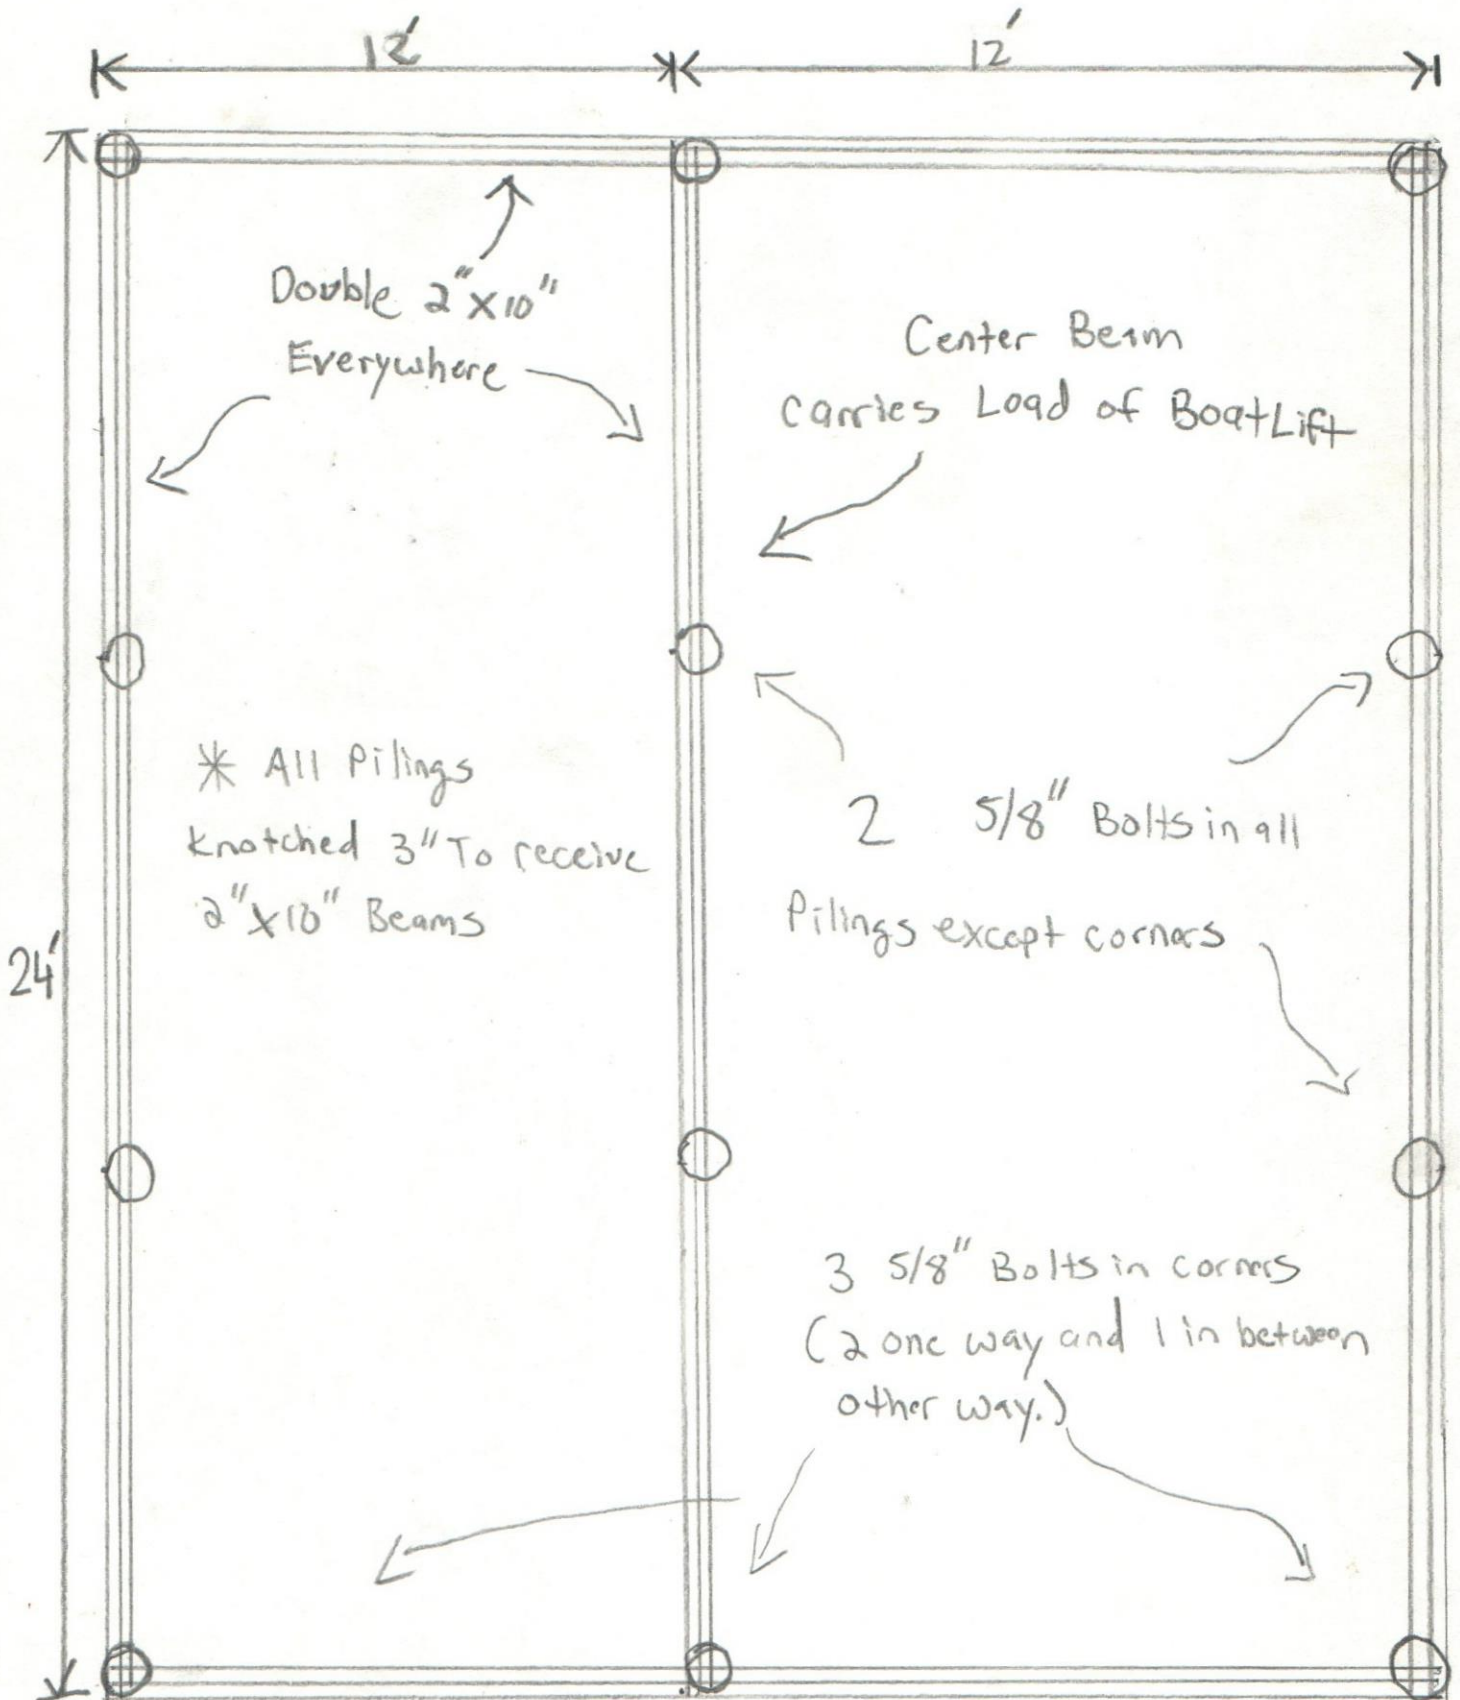 12' 12'
Double 2"x10"
Everywhere
Center Beam
carries Load of BoatLift
* All Pilings
Knotched 3" To receive
2"x10" Beams
2 5/8" Bolts in all
Pilings except corners
24'
3 5/8" Bolts in corners
(2 one way and 1 in between
other way.)